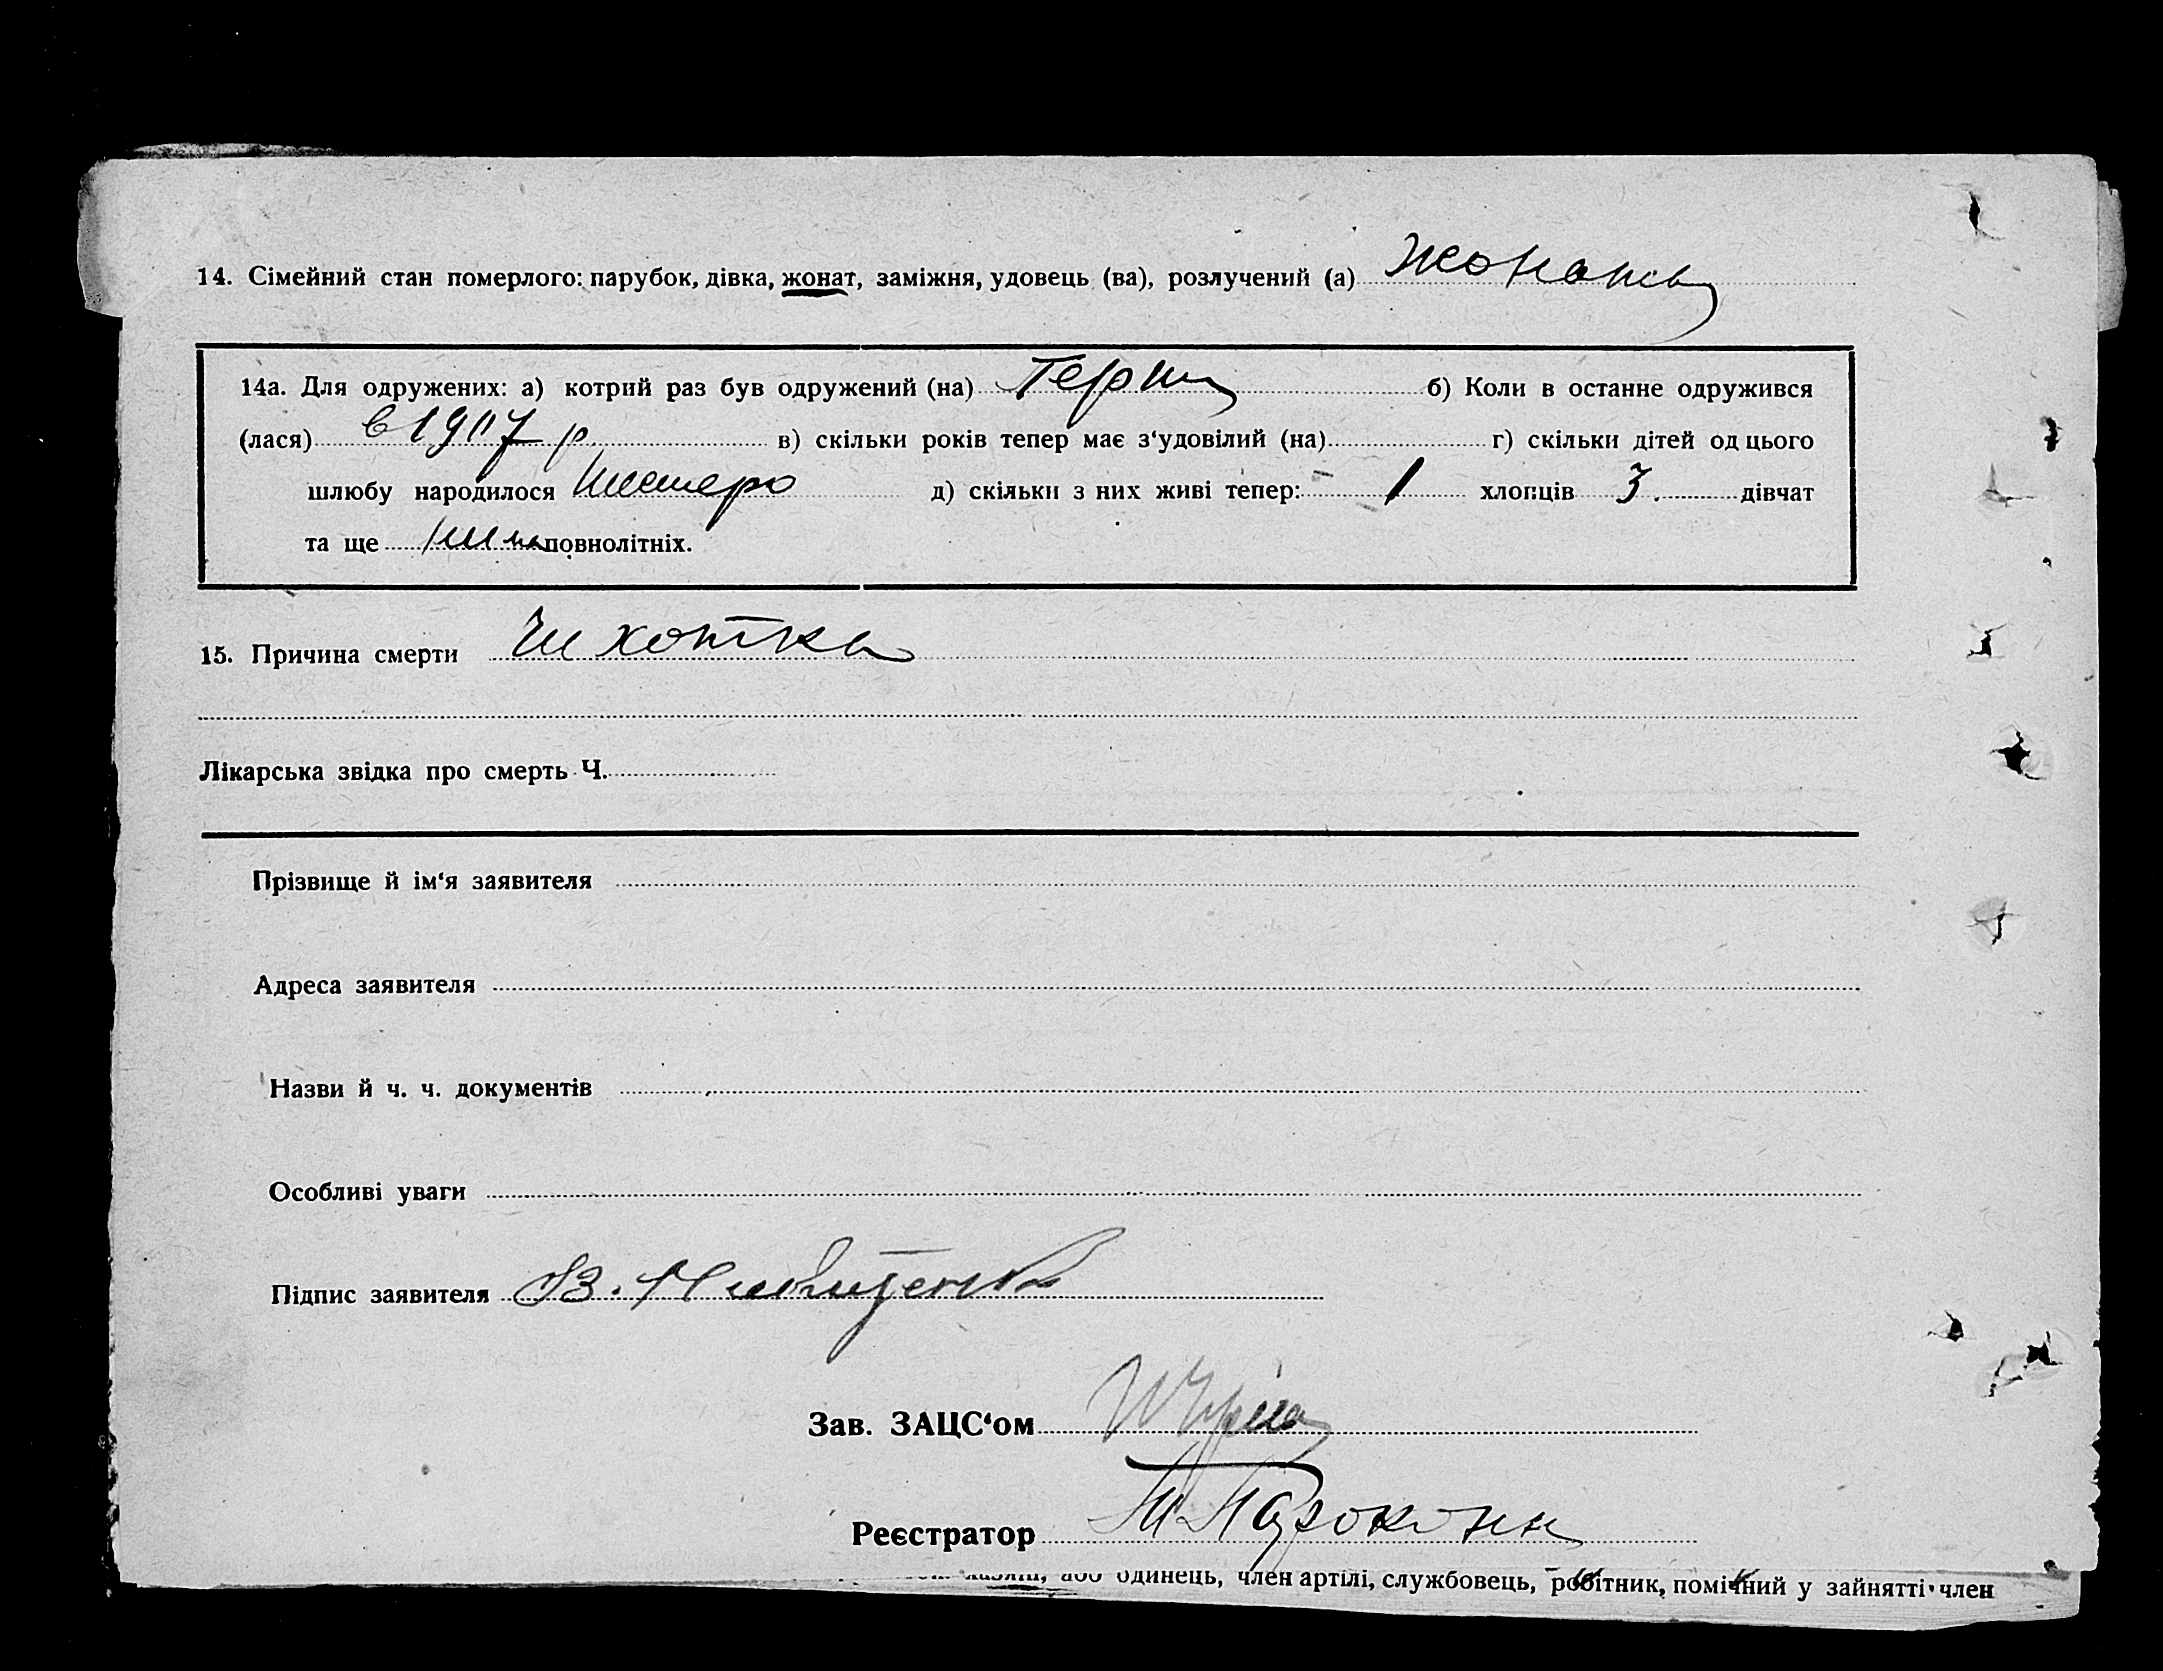 14. Сімейний стан померлого: парубок, дівка, жонат, заміжня, удовець (ва), розлучений (а) жонать
14а. Для одружених: а) котрий раз був одружений (на) Перш б) Коли в останне одружився
(лася) в 1907 р. в) скільки років тепер має з‘удовілий (на) г) скільки дітей од цього
шлюбу народилося Шестеро д) скільки з них живі тепер: 1 хлопців 3. дівчат
та ще повнолітніх.
15. Причина смерти Чихотка
Лікарська звідка про смерть Ч.
Прізвище й ім‘я заявителя
Адреса заявителя
Назви й ч. ч. документів
Особливі уваги
Підпис заявителя В.
Зав. ЗАЦС‘ом
Реєстратор
або одинець, член артілі, службовець, робітник, помічний у зайнятті член